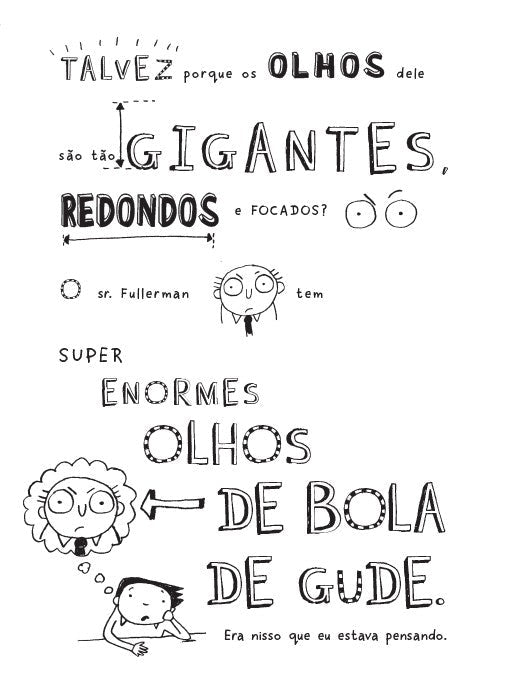 TALVEZ porque os OLHOS dele
são tão GIGANTES,
REDONDOS e FOCADOS?
O sr. Fullerman tem
SUPER
ENORMES
OLHOS
DE BOLA
DE GUDE.
Era nisso que eu estava pensando.